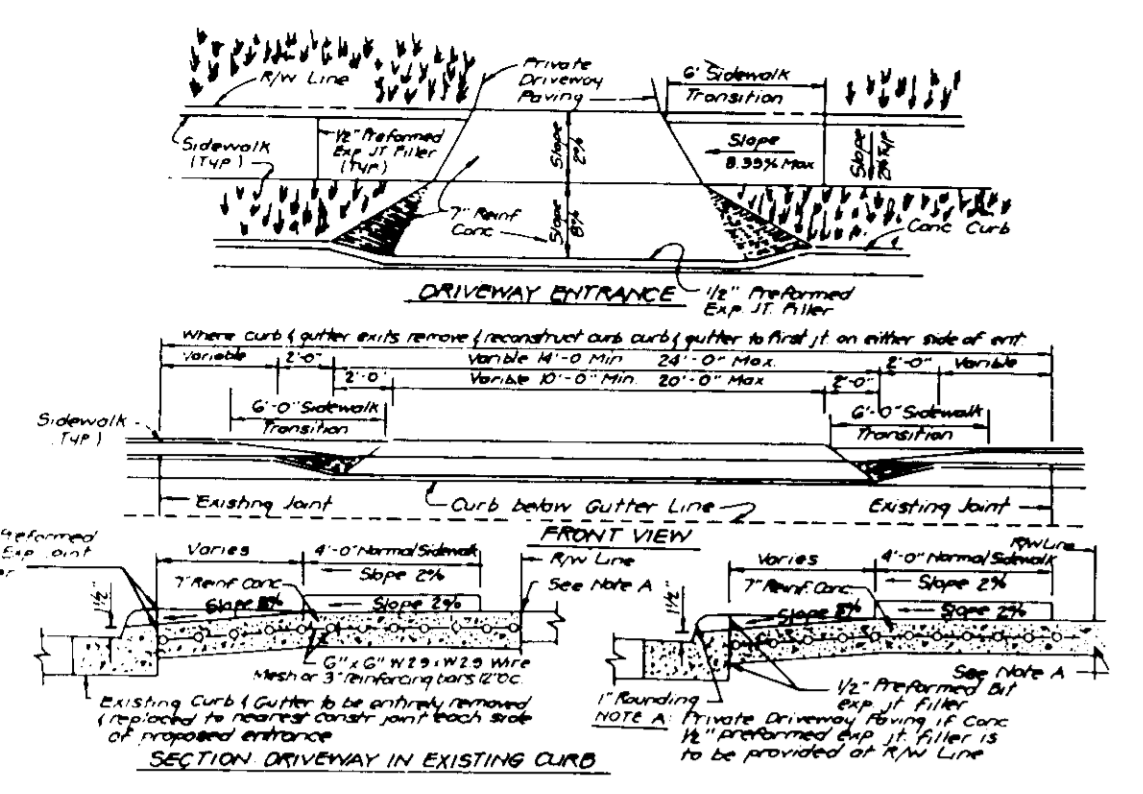 R/W Line
Private
Driveway
Paving
6' Sidewalk
Transition
Sidewalk
(TYP)
1/2" Preformed
Exp. JT Filler
(TYP)
Slope
2%
Slope
8.33% Max
Slope
2% Typ
7" Reinf
Conc
Slope
8%
Conc Curb
DRIVEWAY ENTRANCE
1/2" Preformed
Exp. JT. Filler
Where curb & gutter exits remove & reconstruct curb curb & gutter to first jt. on either side of ent.
Variable 2'-0" Varible 14'-0 Min 24'-0" Max. 2'-0" Variable
2'-0" Varible 10'-0" Min. 20'-0" Max 2'-0"
6'-0" Sidewalk
Transition
6'-0" Sidewalk
Transition
Sidewalk
TYP)
Existing Joint
Curb below Gutter Line
Existing Joint
FRONT VIEW
Preformed
Exp Joint
Varies
4'-0" Normal Sidewalk
Slope 2%
R/W Line
See Note A
7" Reinf Conc
1 1/2"
Slope 8%
Slope 2%
6" x 6" W2.9 x W2.9 Wire
Mesh or 3" reinforcing bars 12" O.C.
Existing Curb & Gutter to be entirely removed
& replaced to nearest constr joint each side
of proposed entrance
SECTION DRIVEWAY IN EXISTING CURB
R/W Line
Varies
4'-0" Normal Sidewalk
Slope 2%
7" Reinf Conc
1 1/2"
Slope 8%
Slope 2%
See Note A
1" Rounding
1/2" Preformed Bit
exp. jt filler
NOTE A: Private Driveway Paving if Conc
1/2" preformed exp jt. filler is
to be provided at R/W Line